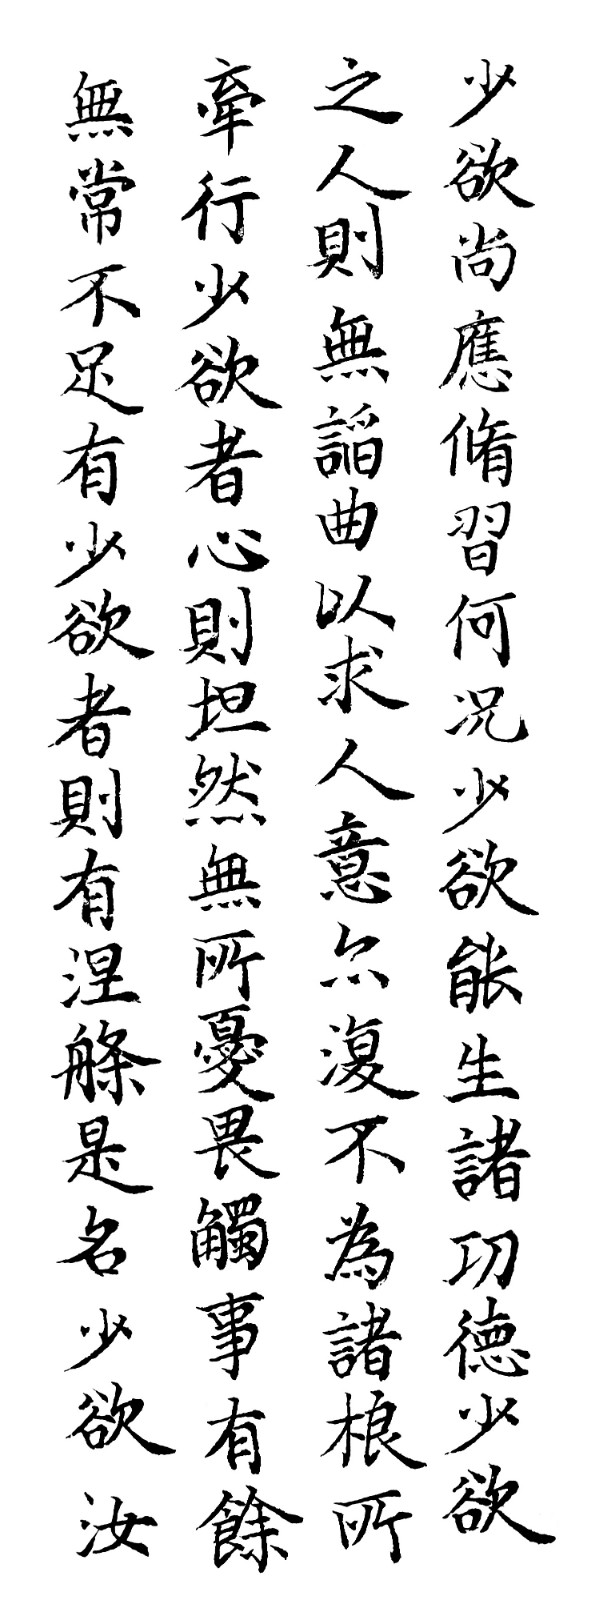 少欲尚應脩習何况少欲能生諸功德少欲
之人則無諂曲以求人意亦復不為諸根所
牽行少欲者心則坦然無所憂畏觸事有餘
無常不足有少欲者則有涅槃是名少欲汝